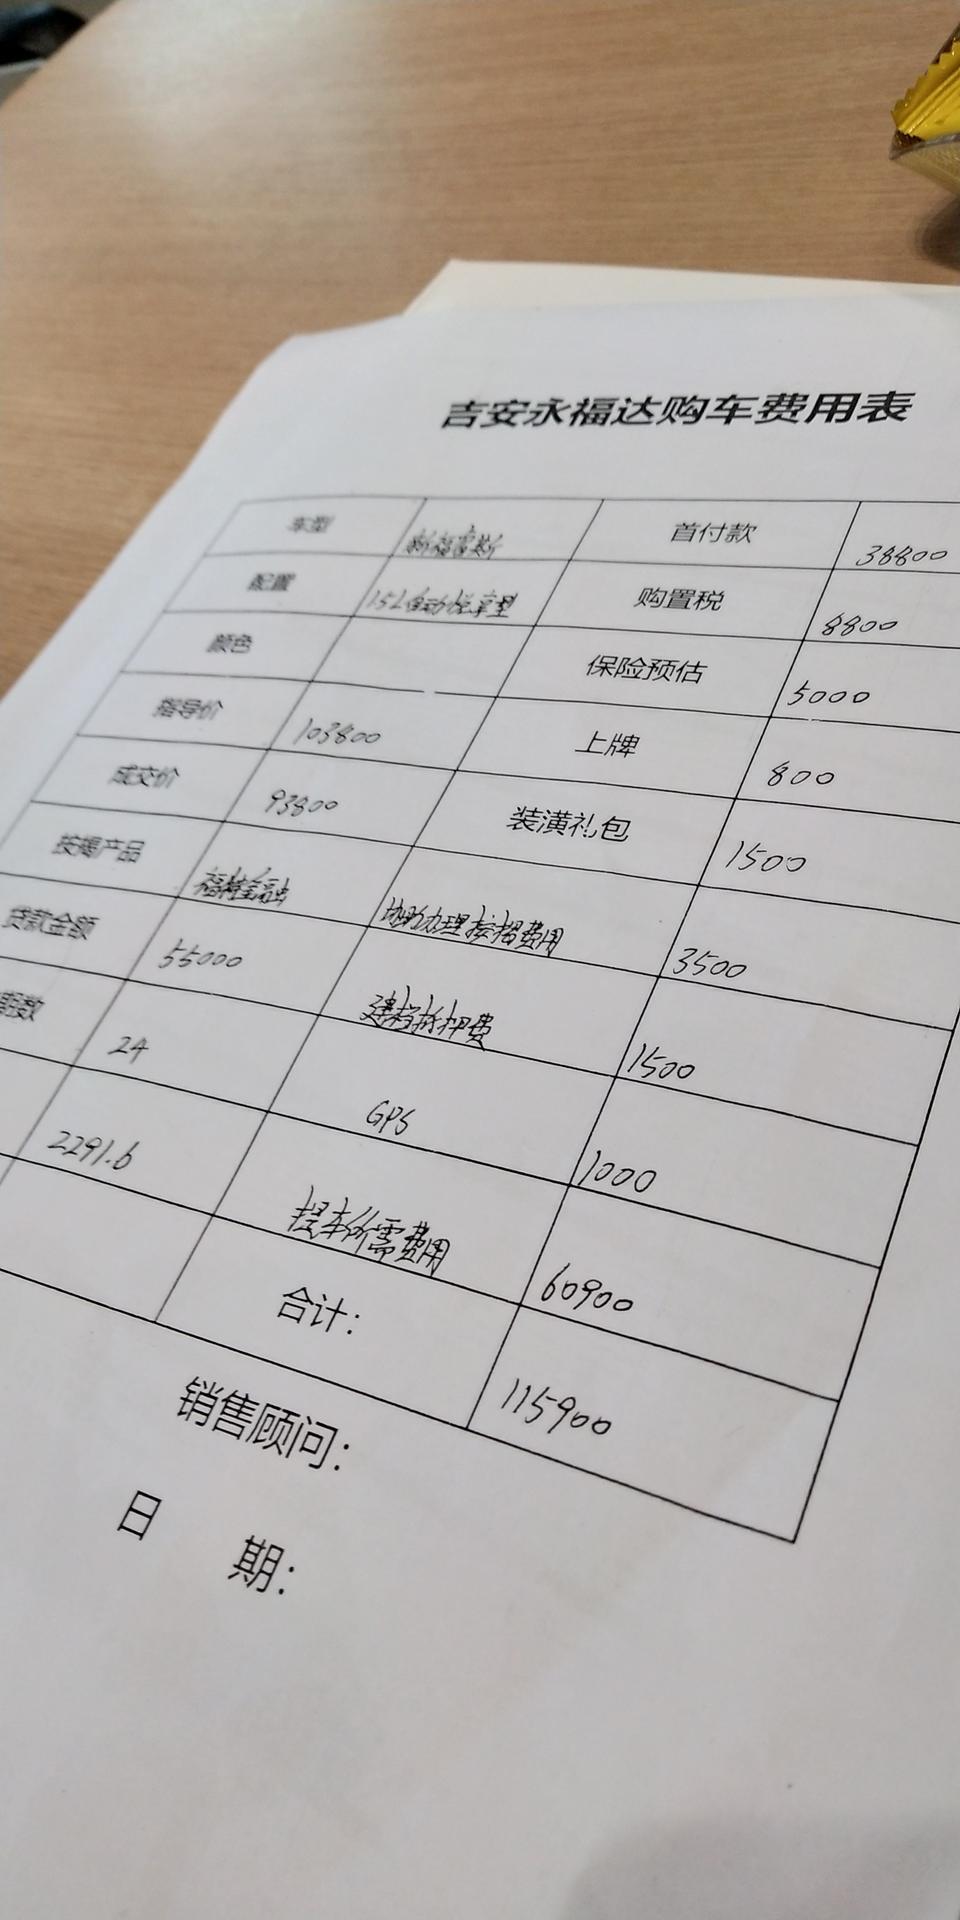 吉安永福达购车费用表
车型 新福睿斯 首付款 38800
配置 1.5L自动悦享型 购置税 8800
颜色 保险预估 5000
指导价 103800 上牌 800
成交价 93800 装潢礼包 1500
按揭产品 福特金融 协助办理按揭费用 3500
贷款金额 55000 建档抵押费 1500
期数 24 GPS 1000
2291.6 提车所需费用 60900
合计: 115900
销售顾问:
日 期: